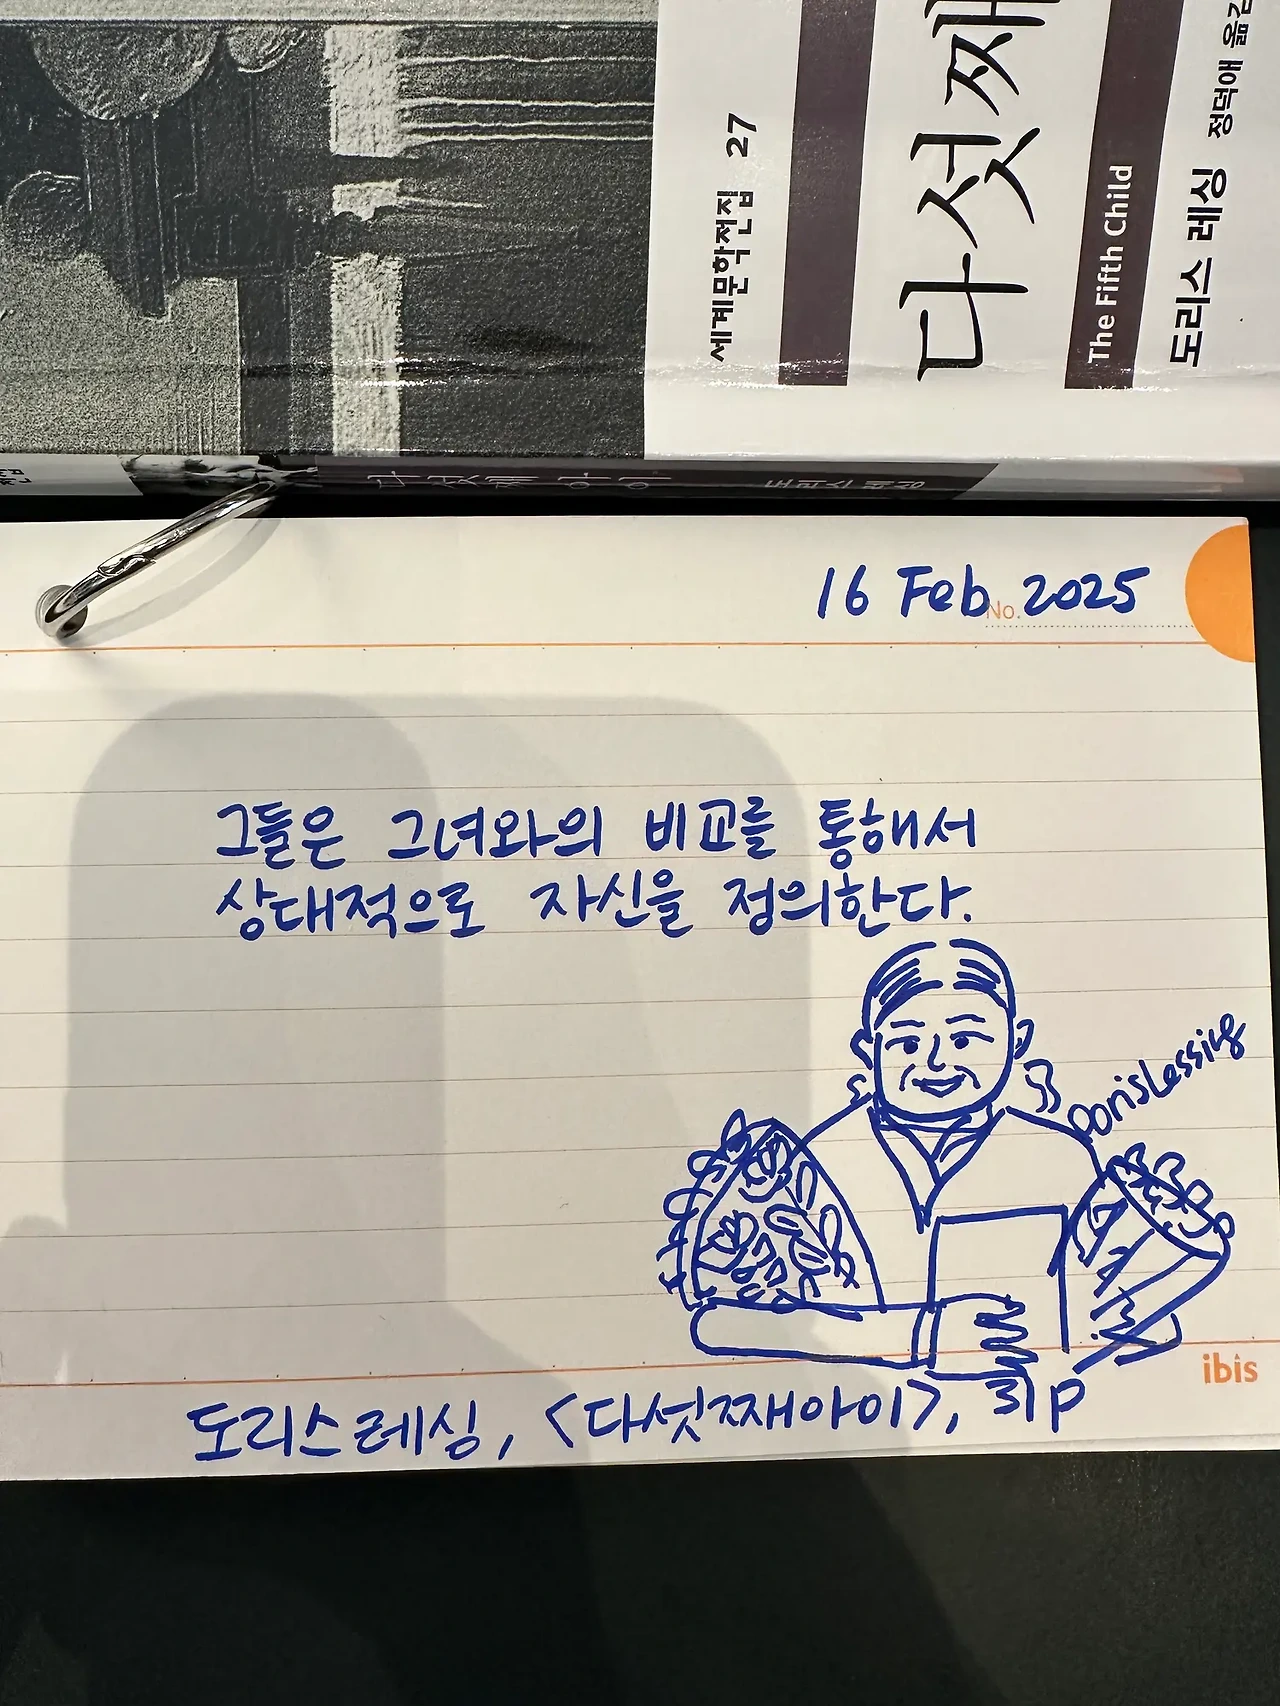 세계문학전집 27
다섯째
The Fifth Child
도리스 레싱 정덕애 옮김
다섯째 아이 도리스 레싱
16 Feb 2025
No.
그들은 그녀와의 비교를 통해서
상대적으로 자신을 정의한다.
Doris Lessing
ibis
도리스 레싱, <다섯째아이>, 31p